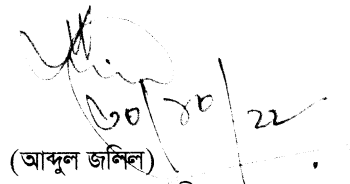 ৩০/১০/২২
(আব্দুল জলিল)